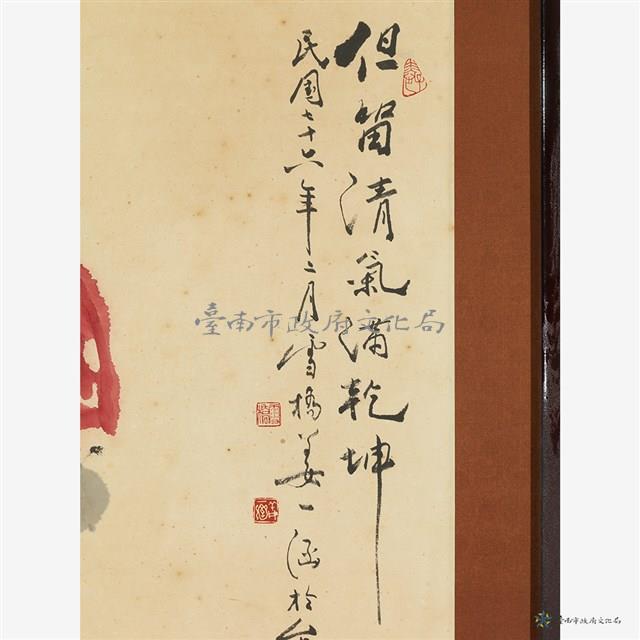 但留清氣滿乾坤
民国七十六年二月雪橋姜一涵於台
臺南市政府文化局
臺南市政府文化局